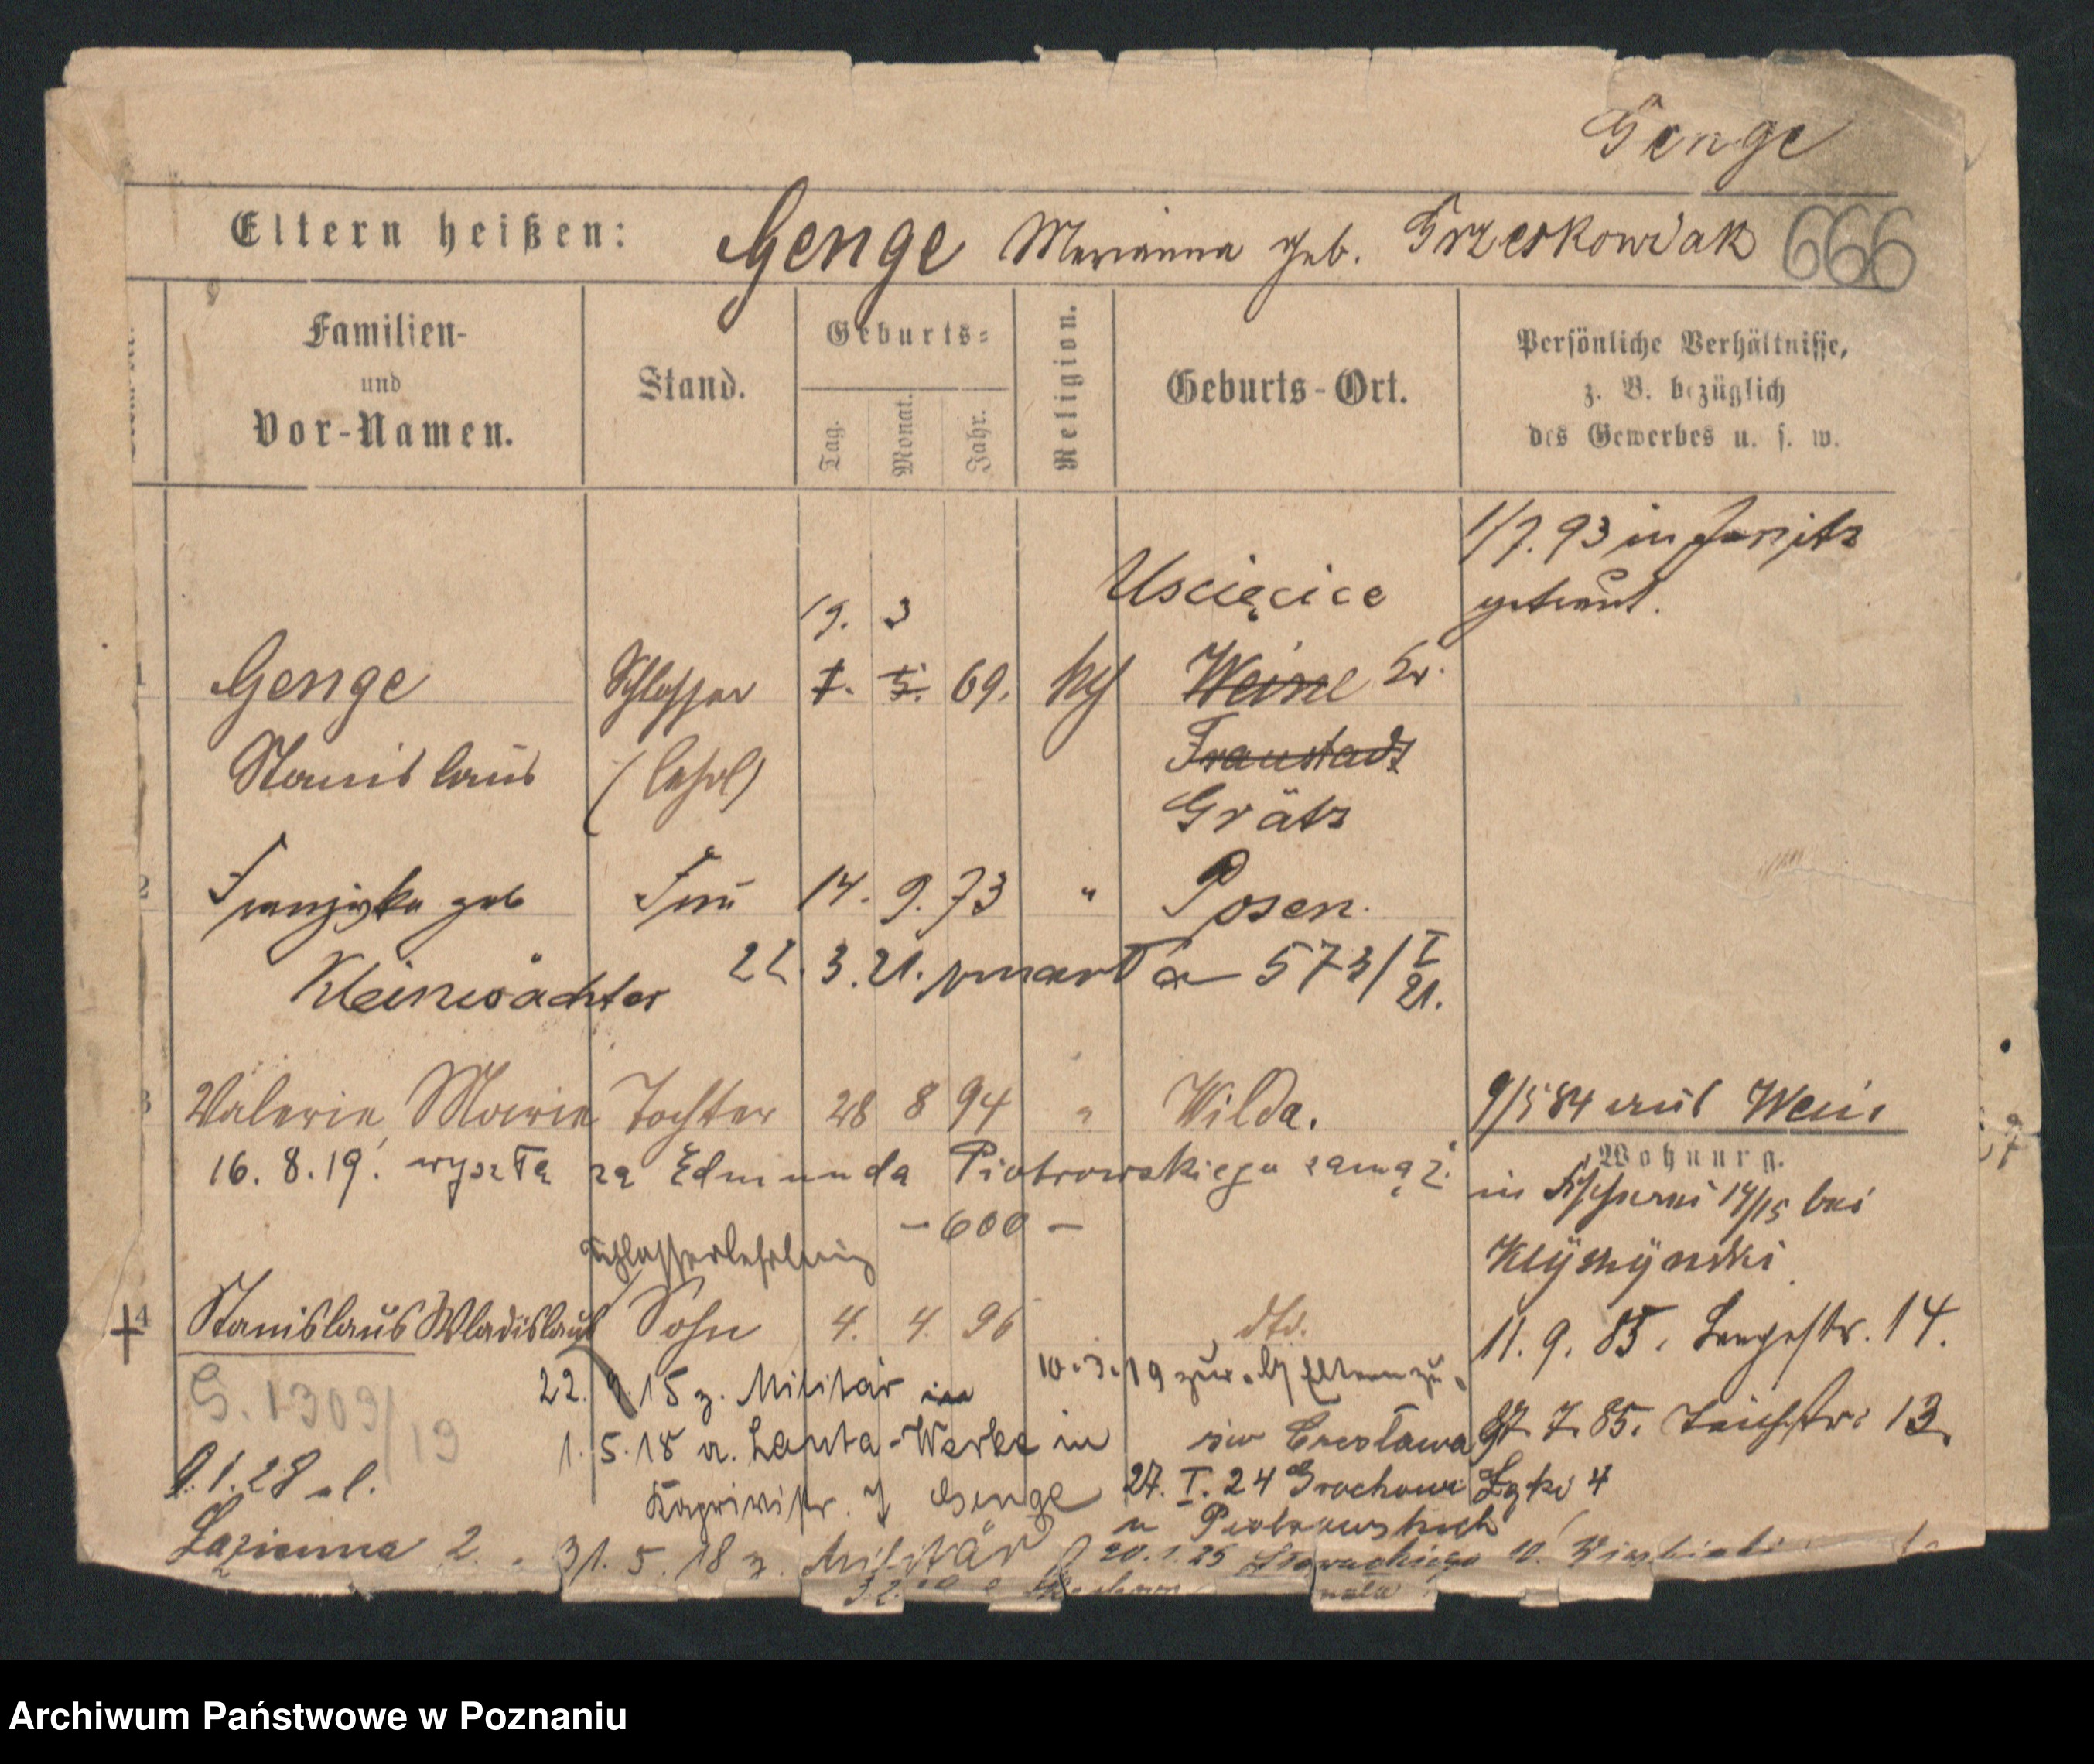 Genge
Eltern heißen: Genge Marianna geb. Grzeskowiak 666
Familien-
und
Vor-Namen.
Stand.
Geburts-
Tag.
Monat.
Jahr.
Religion.
Geburts-Ort.
Persönliche Verhältnisse,
z. B. bezüglich
des Gewerbes u. s. w.
1/7. 93 in Jersitz
getraut.
Uscięcice
19. 3
1 Genge Schlosser 1. 5. 69. kth Weine Kr.
Stanislaus (Lehrl) Fraustadt
Grätz
2 Franziska geb Frau 14. 9. 73 " Posen.
Kleinwächter 22. 3. 21. zmarła 573/I 21.
3 Valerie Marie Tochter 28 8 94 " Wilda. 9/5 84 aus Weine
Wohnung.
16. 8. 19. wyszła za Edmunda Piotrowskiego zamąż. in Fischerei 14/15 bei
- 600 -
Schlosserlehrling
Klyszynski
4 Stanislaus Wladislaus Sohn 4. 4. 96 dto. 11. 9. 85. Langestr. 14.
G. 1309/19
22. 9. 15 z. Militär in 10.3.19 zur. Eltern zu.
1. 5. 18 a. Lauta-Werke in Czesława 7. 85. Teichstr. 13.
9. 1. 28 ul. Genge 27. I. 24 Grochowe Łąki 4
u Piotrowskich
Łazienna 2. 31. 5. 18 z. Militär 20. 1. 25 Słowackiego 10.
Archiwum Państwowe w Poznaniu